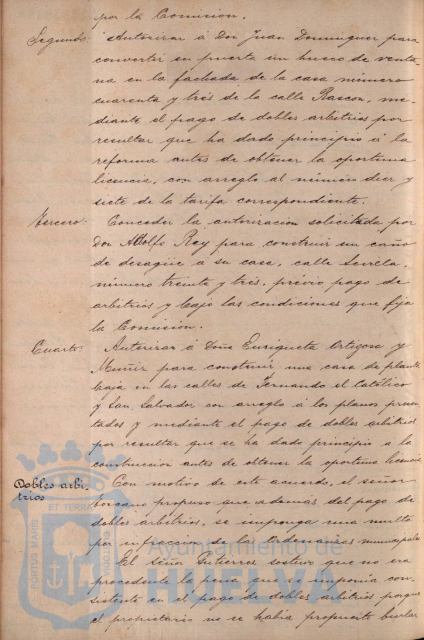 por la Comision.
Segundo: Autorizar á Don Juan Dominguez para
convertir en puerta un hueco de venta-
na en la fachada de la casa número
cuarenta y tres de la calle Rascon, me-
diante el pago de dobles arbitrios por
resultar que ha dado principio á la
reforma antes de obtener la oportuna
licencia, con arreglo al número diez y
siete de la tarifa correspondiente.
Tercero: Conceder la autorizacion solicitada por
Don Adolfo Rey para construir un caño
de desagüe a su casa, calle Sevilla,
número treinta y tres, previo pago de
arbitrios y bajo las condiciones que fija
la Comision.
Cuarto: Autorizar á Doña Enriqueta Ortigosa y
Muñiz para construir una casa de planta
baja en las calles de Fernando el Católico
y San Salvador con arreglo á los planos presen-
tados y mediante el pago de dobles arbitrios
por resultar que se ha dado principio a la
construccion antes de obtener la oportuna licencia
Dobles arbi- Con motivo de este acuerdo, el señor
trios propuso que además del pago de
dobles arbitrios, se imponga una multa
por infraccion de las Ordenanzas municipales
El señor Gutierrez sostuvo que no era
procedente la pena que se imponia con-
sistente en el pago de dobles arbitrios porque
el propietario no se habia propuesto burlar
PORTUS MARIS ET TERRAE CUSTODIA
Ayuntamiento de
HUELVA